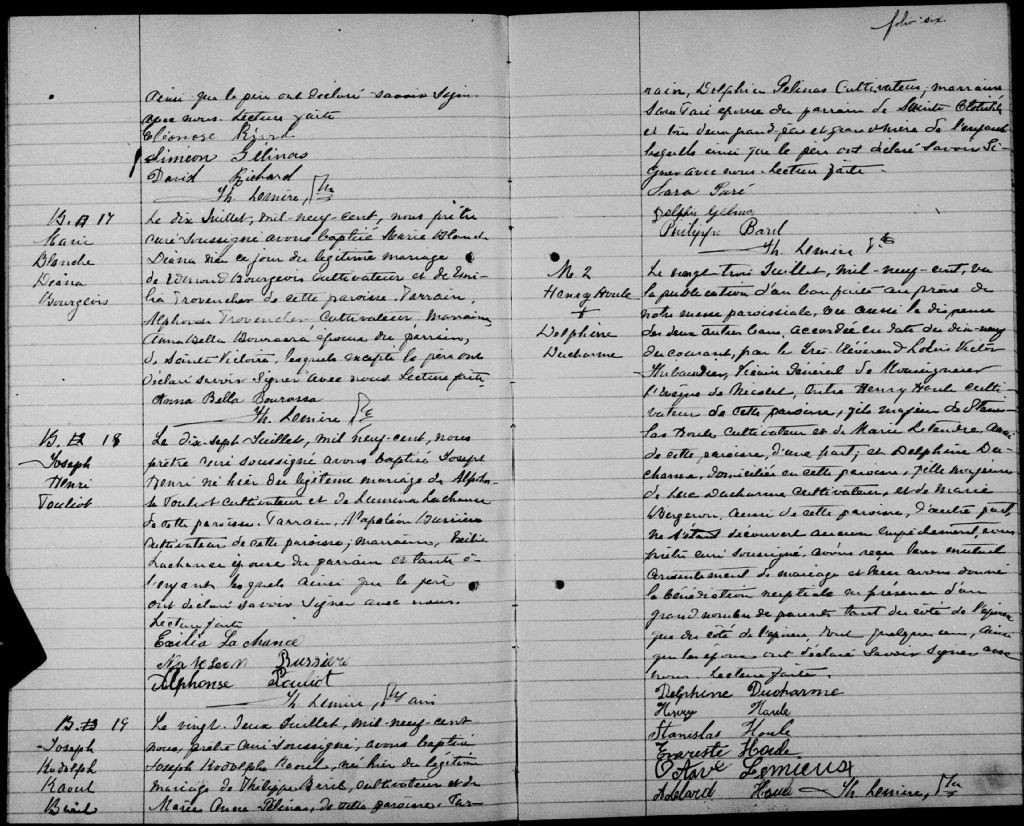 folio six
Ainsi que le père ont déclaré savoir signer
avec nous. Lecture faite
Eléonose Rizard
Siméon Gélinas
David Richard
Th. Lemire, Ptre
B. 17
Marie
Blanche
Diana
Bourgeois
Le dix Juillet, mil-neuf-cent, nous prêtre
curé soussigné avons baptisé Marie Blanche
Diana née ce jour du légitime mariage
de Edmond Bourgeois cultivateur et de Emi-
lia Provencher de cette paroisse. Parrain,
Alphonse Provencher, Cultivateur, Marraine,
Anna Bella Bourassa épouse du parrain,
de Sainte Victoire, lesquels excepté le père ont
déclaré savoir signer avec nous Lecture faite
Anna Bella Bourassa
Th. Lemire Ptre
B. 18
Joseph
Henri
Pouliot
Le dix-sept Juillet, mil neuf-cent, nous
prêtre curé soussigné avons baptisé Joseph
Henri né hier du légitime mariage de Alphon-
se Pouliot cultivateur et de Lumina Lachance
de cette paroisse. Parrain, Napoléon Bussière
cultivateur de cette paroisse; marraine, Exilia
Lachance épouse du parrain et tante à
l'enfant lesquels ainsi que le père
ont déclaré savoir signer avec nous.
Lecture faite
Exilia Lachance
Napoleon Bussière
Alphonse Pouliot
Th. Lemire, Ptre
B. 19
Joseph
Rodolphe
Raoul
Baril
Le vingt-deux Juillet, mil-neuf-cent
nous, prêtre curé soussigné, avons baptisé
Joseph Rodolphe Raoul, né hier du légitime
mariage de Philippe Baril, cultivateur et de
Marie Anne Gélinas, de cette paroisse. Par-
rain, Delphis Gelinas Cultivateur; marraine
Sara Paré épouse du parrain de Sainte Clotilde
et tous deux grand-père et grand'mère de l'enfant
lesquels ainsi que le père ont déclaré savoir si-
gner avec nous. Lecture faite.
Sara Paré
Delphis Gelinas
Philippe Baril
Th. Lemire Ptre
M. 2
Henry Houle
+
Delphine
Ducharme
Le vingt trois Juillet, mil-neuf-cent, vu
la publication d'un ban faite au prône de
notre messe paroissiale, vu aussi la dispense
des deux autres bans, accordée en date du dix-neuf
du courant, par le Très Révérend Louis Victor
Thibaudier, Vicaire Général de Monseigneur
l'Evêque de Nicolet, entre Henry Houle culti-
vateur de cette paroisse, fils majeur de Stanis-
las Houle cultivateur et de Marie Letendre, aussi
de cette paroisse, d'une part; et Delphine Du-
charme, domiciliée en cette paroisse, fille majeure
de Luc Ducharme cultivateur, et de Marie
Bergeron, aussi de cette paroisse, d'autre part
ne s'étant découvert aucun empêchement, nous
prêtre curé soussigné, avons reçu leur mutuel
consentement de mariage et leur avons donné
la bénédiction nuptiale en présence d'un
grand nombre de parents tant du côté de l'époux
que du côté de l'épouse, dont quelques uns, ainsi
que les époux ont déclaré savoir signer avec
nous. Lecture faite.
Delphine Ducharme
Henry Houle
Stanislas Houle
Evariste Houle
Octave Lemieux
Adelard Houle Th. Lemire, Ptre